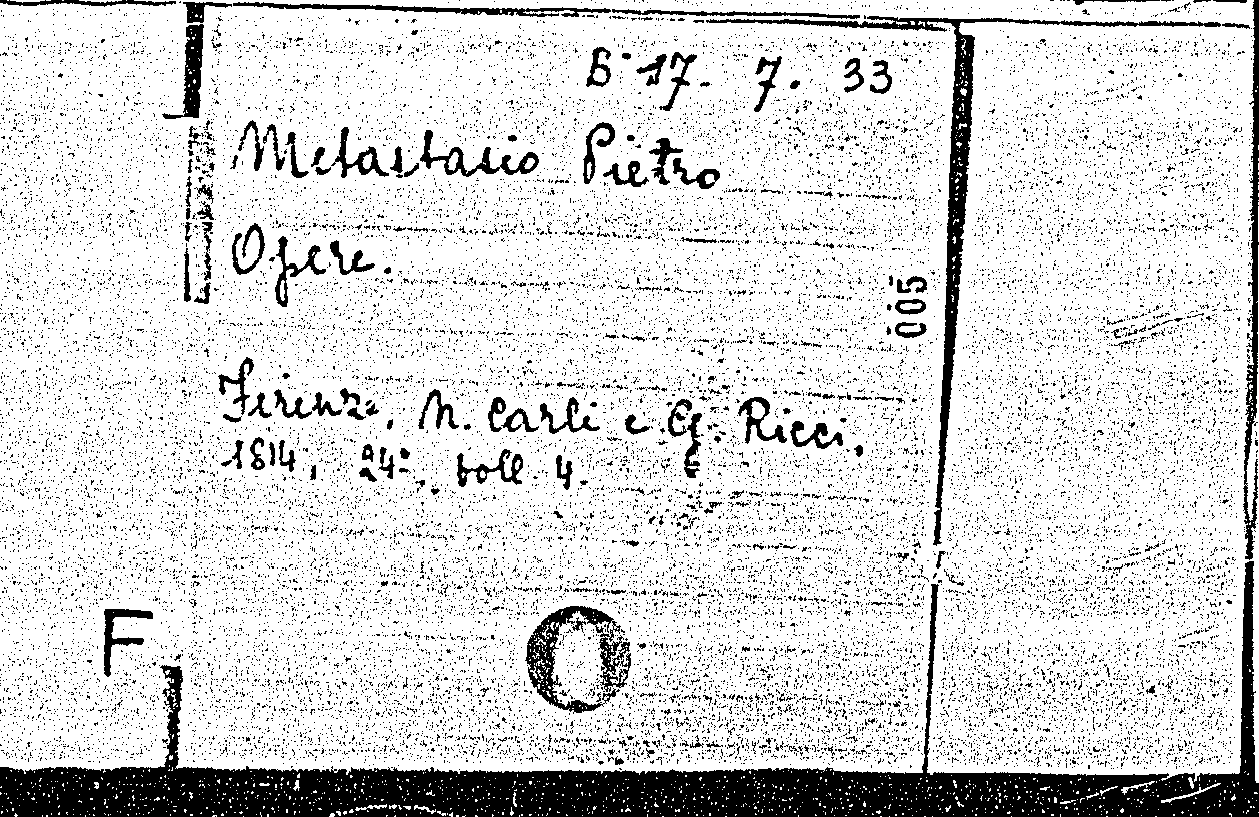 B. 17. 7. 33
Metastasio Pietro
Opere.
005
Firenze, N. Carli e G. Ricci,
1814, 24º, voll 4.
F